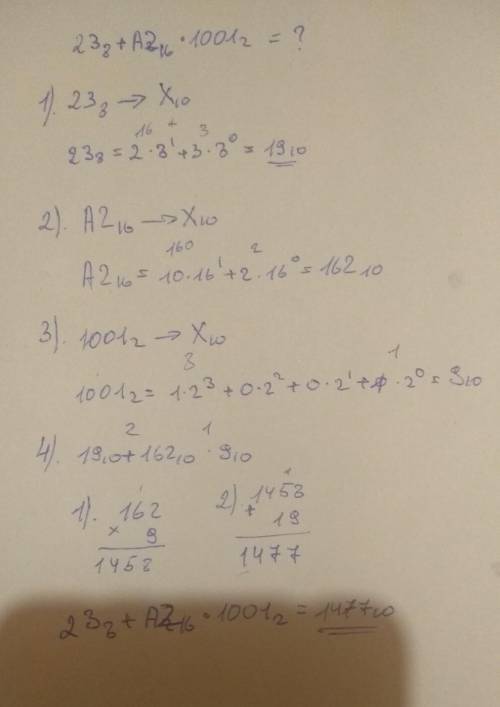 23₈ + A2₁₆ · 1001₂ = ?
1). 23₈ → X₁₀
16 + 3
23₈ = 2 · 8¹ + 3 · 8⁰ = 19₁₀
2). A2₁₆ → X₁₀
160 2
A2₁₆ = 10 · 16¹ + 2 · 16⁰ = 162₁₀
3). 1001₂ → X₁₀
8 1
1001₂ = 1 · 2³ + 0 · 2² + 0 · 2¹ + 1 · 2⁰ = 9₁₀
2 1
4). 19₁₀ + 162₁₀ · 9₁₀
1). 162 × 9 1458
2) 1458 + 19 1477
23₈ + A2₁₆ · 1001₂ = 1477₁₀